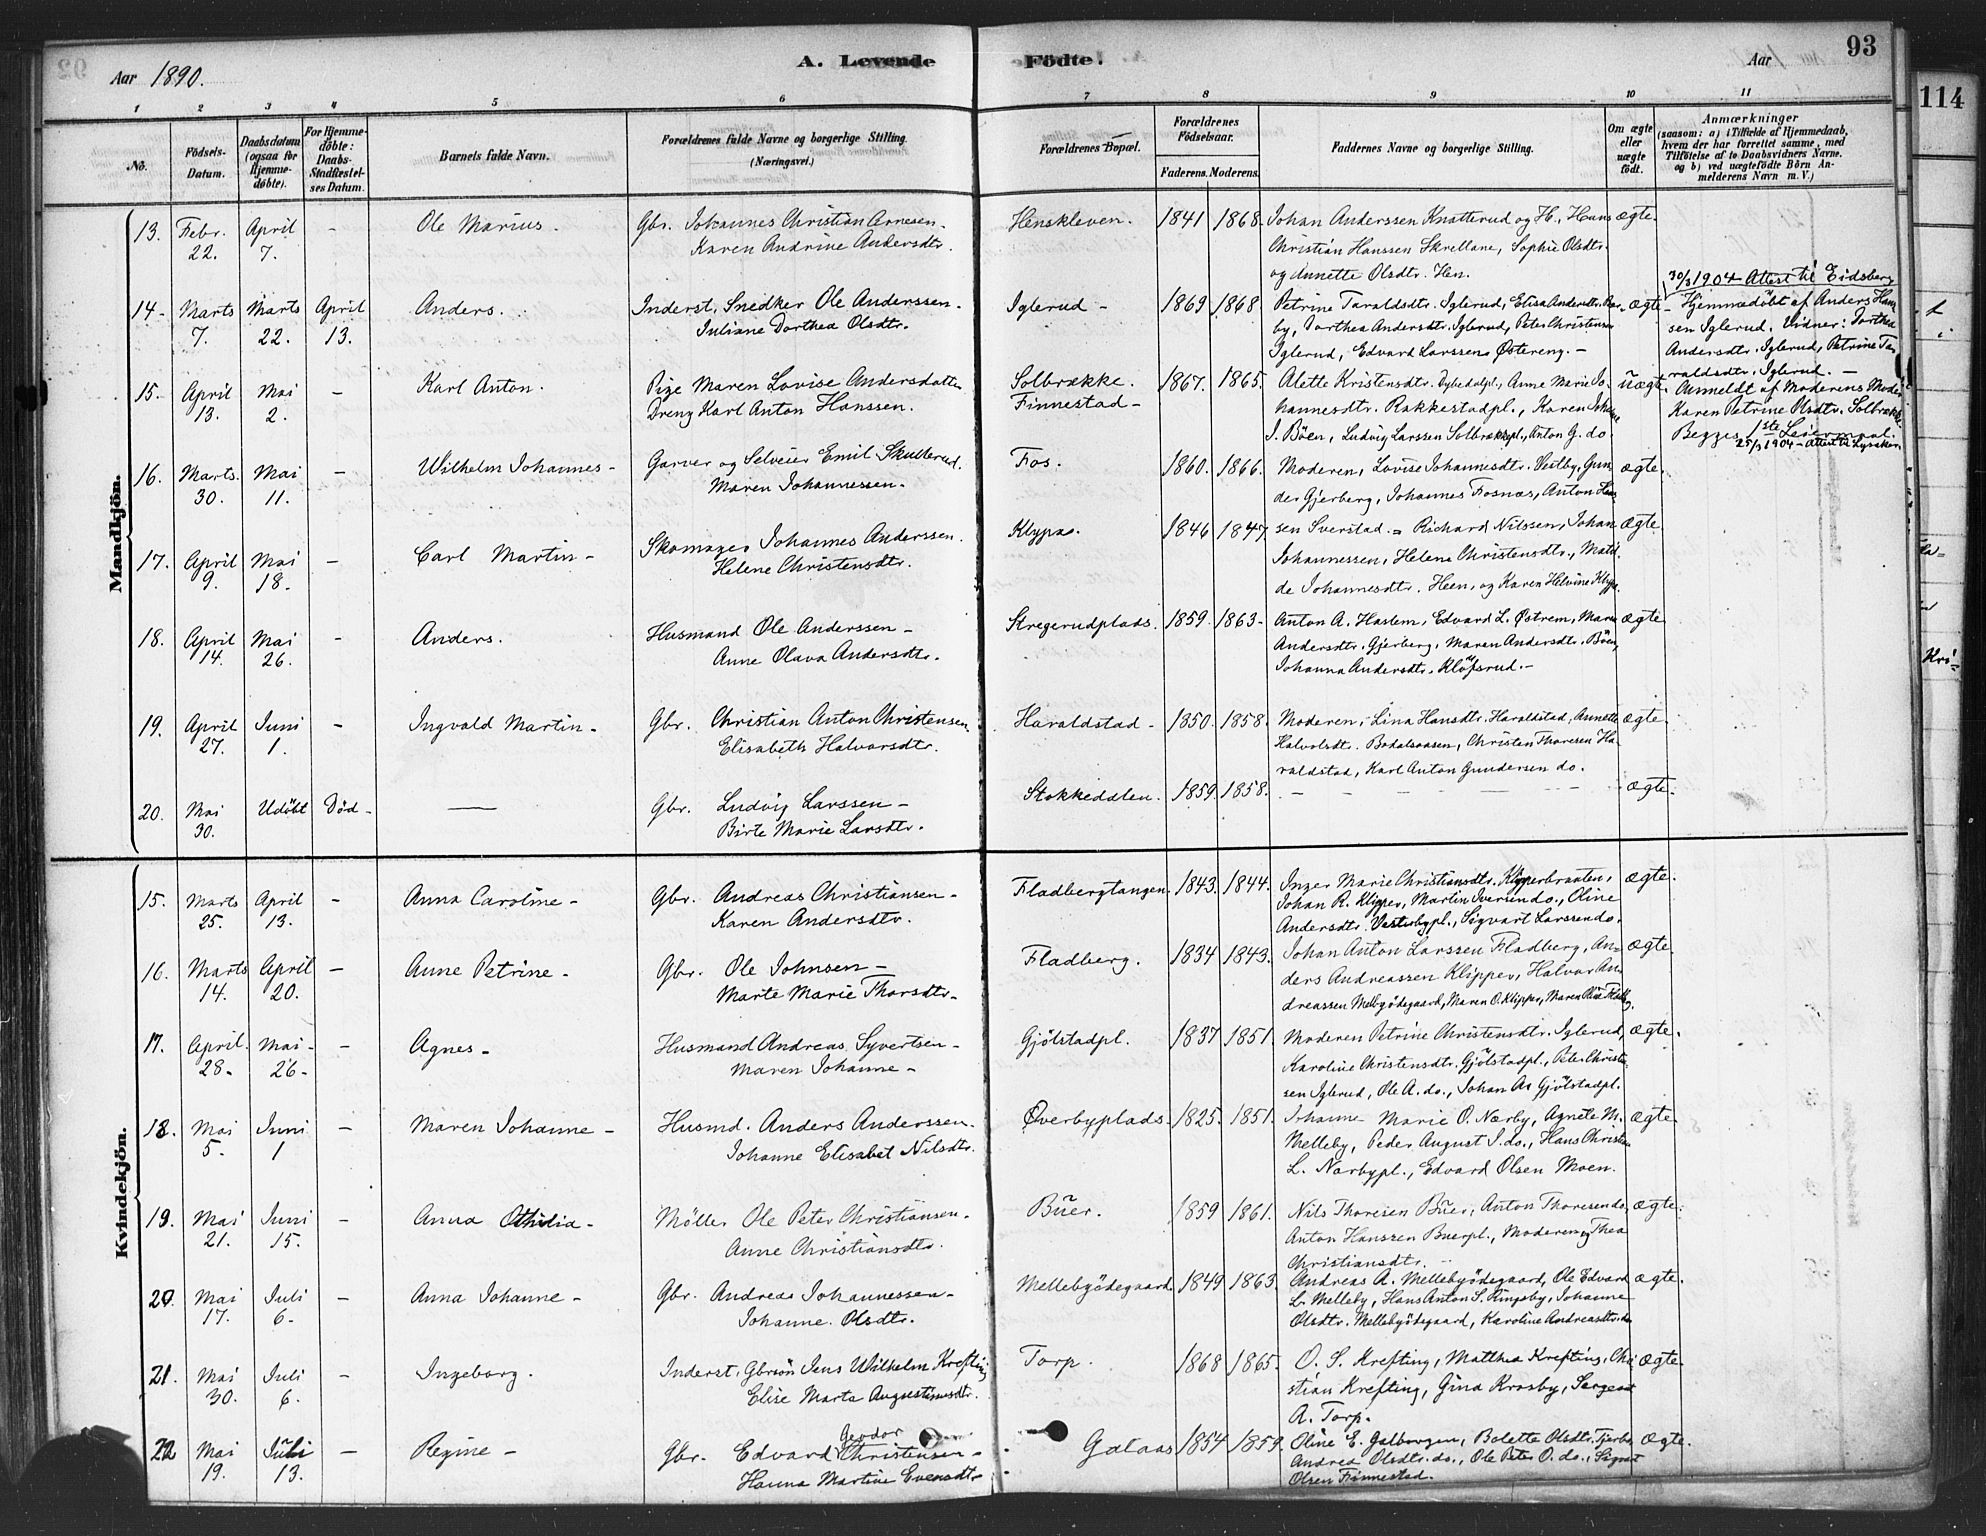 92
Aar 1890.
A. Levende
Födte.
Aar
93
114
1 2 3 4 5 6 7 8 9 10 11
No.
Födsels-
Datum.
Daabsdatum
(ogsaa for
Hjemme-
döbte).
For Hjemme-
döbte:
Daabs-
Stadfæstel-
ses Datum.
Barnets fulde Navn.
Forældrenes fulde Navne og borgerlige Stilling
(Næringsvei.)
Forældrenes Bopæl.
Forældrenes
Födselsaar.
Faderens. Moderens.
Faddernes Navne og borgerlige Stilling.
Om ægte
eller
uægte
födt.
Anmærkninger
(saasom: a) i Tilfælde af Hjemmedaab,
hvem der har forrettet samme, med
Tilföielse af to Daabsvidners Navne.
og b) ved uægtefödte Börn An-
melderens Navn m. V.)
Mandkjön.
13. Febr. 22. April 7. - Ole Marius. Gbr. Johannes Christian Arnesen. Henskleven. 1841 1868. Johan Anderssen Knatterud og H., Hans ægte.
Karen Andrine Andersdtr. Christian Hanssen Skrellane, Sophie Olsdtr.
og Annette Olsdtr. Hen.
30/3 1904 Attest til Eidsberg
14. Marts 7. Marts 22. April 13. Anders. Inderst, Snedker Ole Anderssen. Iglerud - 1869 1868 Petrine Taraldsdtr. Iglerud, Elisa Andersdtr. ægte - Hjemmedöbt af Anders Han
Juliane Dorthea Olsdtr. by, Dorthea Andersdtr. Iglerud, Peter Christensen sen Iglerud. Vidner: Dorthea
Iglerud, Edvard Larssen Østereng. - Andersdtr. Iglerud, Petrine Ta
raldsdtr. Iglerud. -
15. April 13. Mai 2. - Karl Anton. Pige Maren Lovise Andersdatter Solbrække. 1867. 1865. Alette Kristensdtr. Dybedalpl., Anne Marie Jo uægte. Anmeldt af Moderens Moder
Dreng Karl Anton Hanssen. Finnestad - hannesdtr. Rakkestadpl., Karen Johanne Karen Petrine Olsdtr. Solbrække
J. Böen, Ludvig Larssen Solbrækkepl., Anton G. do. Begges 1ste Leiermaal.
25/3 1904 - Attest til
16. Marts 30. Mai 11. - Wilhelm Johannes - Garver og Selveier Emil Skullerud. Fos. 1860. 1866. Moderen, Lovise Johannesdtr. Vestby, Gun ægte.
Maren Johannessen. der Gjerberg, Johannes Fosnæs, Anton Han
17. April 9. Mai 18. - Carl Martin - Skomager Johannes Anderssen. Klypa. 1846 1847. sen Sverstad. = Richard Nilssen, Johan ægte.
Helene Christensdtr. Johannessen, Helene Christensdtr., Matil
de Johannesdtr. Heen, og Karen Helvine Klypa.
18. April 14. Mai 26. - Anders. Husmand Ole Anderssen - Skregerudplads. 1859. 1863 - Anton A. Haslem, Edvard L. Østrem, Maren ægte
Anne Olava Andersdtr. Andersdtr. Gjerberg, Maren Andersdtr. Böen,
Johanna Andersdtr. Klöfsrud. -
19. April 27. Juni 1. - Ingvald Martin - Gbr. Christian Anton Christensen Haraldstad - 1850. 1858. Moderen, Lina Hansdtr. Haraldstad, Annette ægte.
Elisabeth Halvorsdtr. Halvolsdtr. Bodalsaasen, Christen Thoresen Ha
raldstad, Karl Anton Gundersen do.
20. Mai 30. Udöbt Död - — Gbr. Ludvig Larssen - Stokkedalen. 1859. 1858. - - - ægte.
Birte Marie Larsdtr.
Kvindekjön.
15. Marts 25. April 13. - Anna Caroline - Gbr. Andreas Christiansen - Fladbergtangen. 1843. 1844. Inger Marie Christiansdtr. Klipperbraaten, ægte.
Karen Andersdtr. Johan R. Klipper, Martin Iversen do., Oline
Andersdtr. Vesterbypl., Sigvart Larssen do.
16. Marts 14. April 20. - Anne Petrine - Gbr. Ole Johnsen - Fladberg. 1834 1843. Johan Anton Larssen Fladberg, An- ægte.
Marte Marie Thorsdtr. ders Andreassen Klipper, Halvor An
dreassen Mellbyödegaard, Maren O. Klipper, Maren Oline Fladberg.
17. April. 28. Mai 26. - Agnes - Husmand Andreas Syvertsen - Gjölstadpl. 1837 1851. Moderen Petrine Christensdtr. Iglerud, ægte.
Maren Johanne - Karoline Christensdtr. Gjölstadpl., Peter Christen
sen Iglerud, Ole A. do., Johan A. Gjölstadpl.
18. Mai 5. Juni 1 - Maren Johanne - Husmd. Anders Anderssen. Øverbyplads. 1825. 1851. Johanne Marie O. Nærby, Agnete M. ægte.
Johanne Elisabet Nilsdtr. Melleby, Peder August J. do., Hans Christian
L. Nærbypl., Edvard Olsen Moen.
19. Mai 21. Juni 15. - Anna Othidia - Möller Ole Peter Christiansen. Buer. 1859 1861. Nils Thoresen Buer, Anton Thoresen do. ægte.
Anne Christiansdtr. Anton Hanssen Buerpl., Moderen og Thea
Christiansdtr.
20. Mai 17. Juli 6. - Anna Johanne - Gbr. Andreas Johannessen - Mellebyödegaard 1849 1863. Andreas A. Mellebyödegaard, Ole Edvard ægte.
Johanne Olsdtr. L. Melleby, Hans Anton S. Ringsby, Johanne
Olsdtr. Mellebyödegaard, Karoline Andreasdtr. do.
21. Mai 30. Juli 6. - Ingeborg. Inderst, Gbrsön Jens Wilhelm Krefting Torp. 1868 1865. O. S. Krefting, Matthea Krefting, Chri ægte.
Elise Marta Augustinusdtr. stian Krefting, Gina Krosby, Sergeant
A. Torp.
22 Mai 19. Juli 13. - Regine - Gbr. Edvard Teodor Christensen - Galaas 1854 1859. Oline E. Galborgen, Bolette Olsdtr. ægte.
Hanna Martine Evensdtr. Andrea Olsdtr. do., Ole Peter O. do., Sigvart
Olsen Finnestad.
Kri-